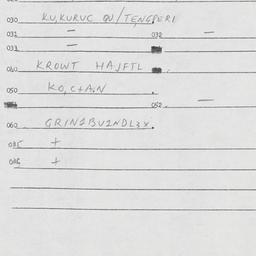 030 KU,KURUC QU/TENGPERI
031 — 032 —
033 —
040 KROWT HAJFTL
050 KO,C+A:N
052 —
060 GRIN2BU2NDL3X.
085 +
086 +